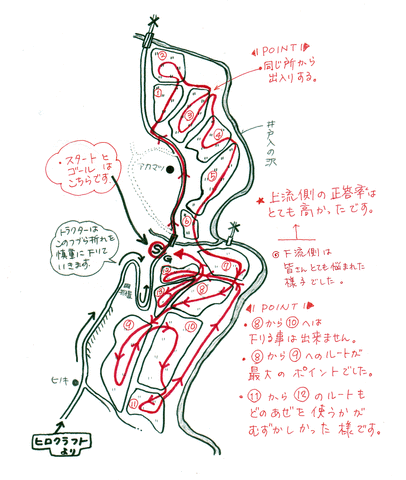 ◁ POINT ▷
・同じ所から
出入りする。
②
①
③
④
⑤
⑥
井戸入の沢
アカマツ
・スタートと
ゴールは
こちらです。
★上流側の正答率は
とても高かったです。
◎下流側は
皆さんとても悩まれた
様子でした。
トラクターは
このつづら折れを
慎重に下りて
いきます。
S
G
⑦
⑧
⑨
⑩
⑪
⑫
◁ POINT ▷
・⑧から⑩へは
下りる事は出来ません。
・⑧から⑨へのルートが
最大のポイントでした。
・⑪から⑫のルートも
どのあぜを使うかが
むずかしかった様です。
ヒノキ
ヒロクラフト
より